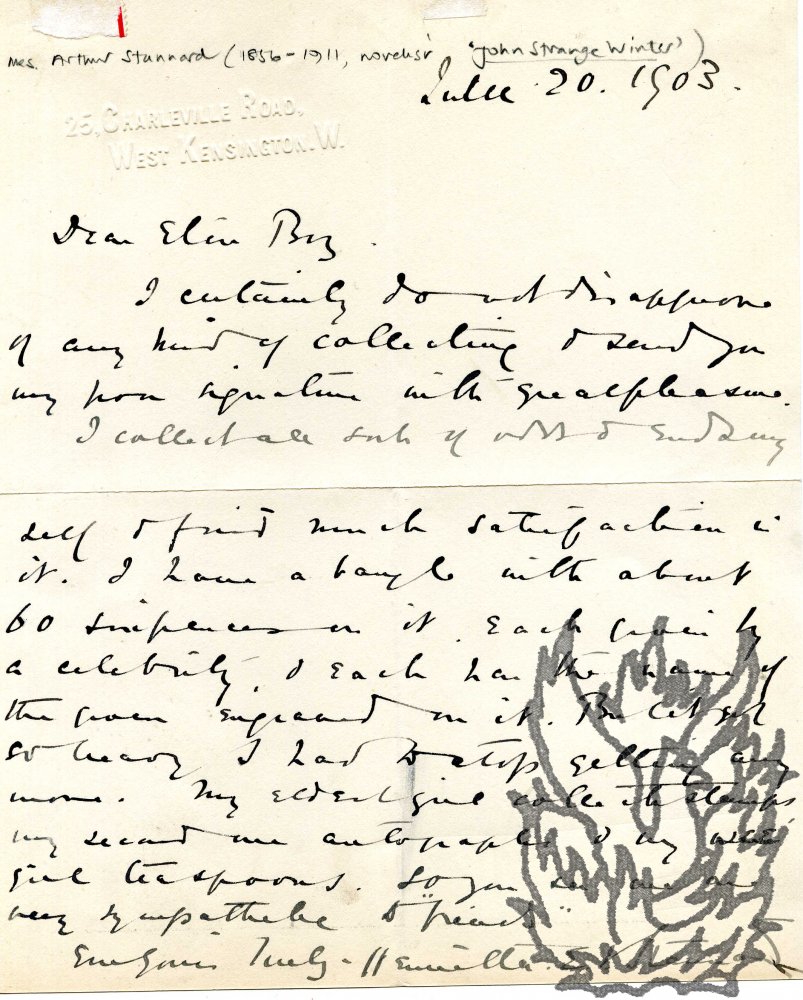 Mrs. Arthur Stannard (1856-1911, novelist, 'John Strange Winter')
June 20. 1903.
25, CHARLEVILLE ROAD,
WEST KENSINGTON. W.
Dear Boy.
I certainly do not disapprove
of any kind of collecting & send you
my poor signature with great pleasure.
I collect all sorts of odds & ends my
self & find much satisfaction in
it. I have a bangle with about
60 sixpences on it. Each given by
a celebrity, & each has the name of
the giver engraved on it. But it got
so heavy I had to stop getting any
more. My eldest girl collects stamps
my second one autographs & my
girl teaspoons. So you see we are
very sympathetic & "friends"
Ever Yours Truly - Henrietta E V Stannard